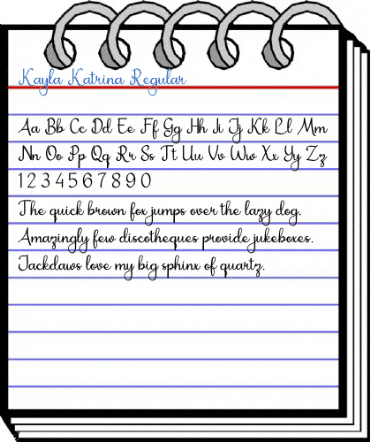 Kayla Katrina Regular
Aa Bb Cc Dd Ee Ff Gg Hh Ii Jj Kk Ll Mm
Nn Oo Pp Qq Rr Ss Tt Uu Vv Ww Xx Yy Zz
1 2 3 4 5 6 7 8 9 0
The quick brown fox jumps over the lazy dog.
Amazingly few discotheques provide jukeboxes.
Jackdaws love my big sphinx of quartz.